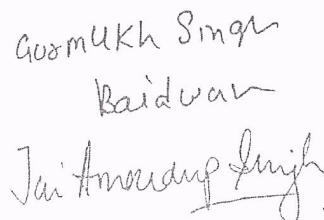 Gurmukh Singh
Baidwan
Jai Amardeep Singh